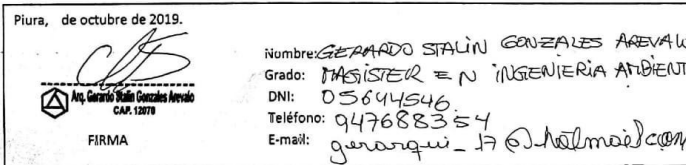 Piura, de octubre de 2019.
Arq. Gerardo Stalin Gonzales Arevalo
CAP. 12078
FIRMA
Nombre: GERARDO STALIN GONZALES AREVALO
Grado: MAGISTER EN INGENIERIA AMBIENT
DNI: 05644546
Teléfono: 947688354
E-mail: gerarqui_17@hotmail.com